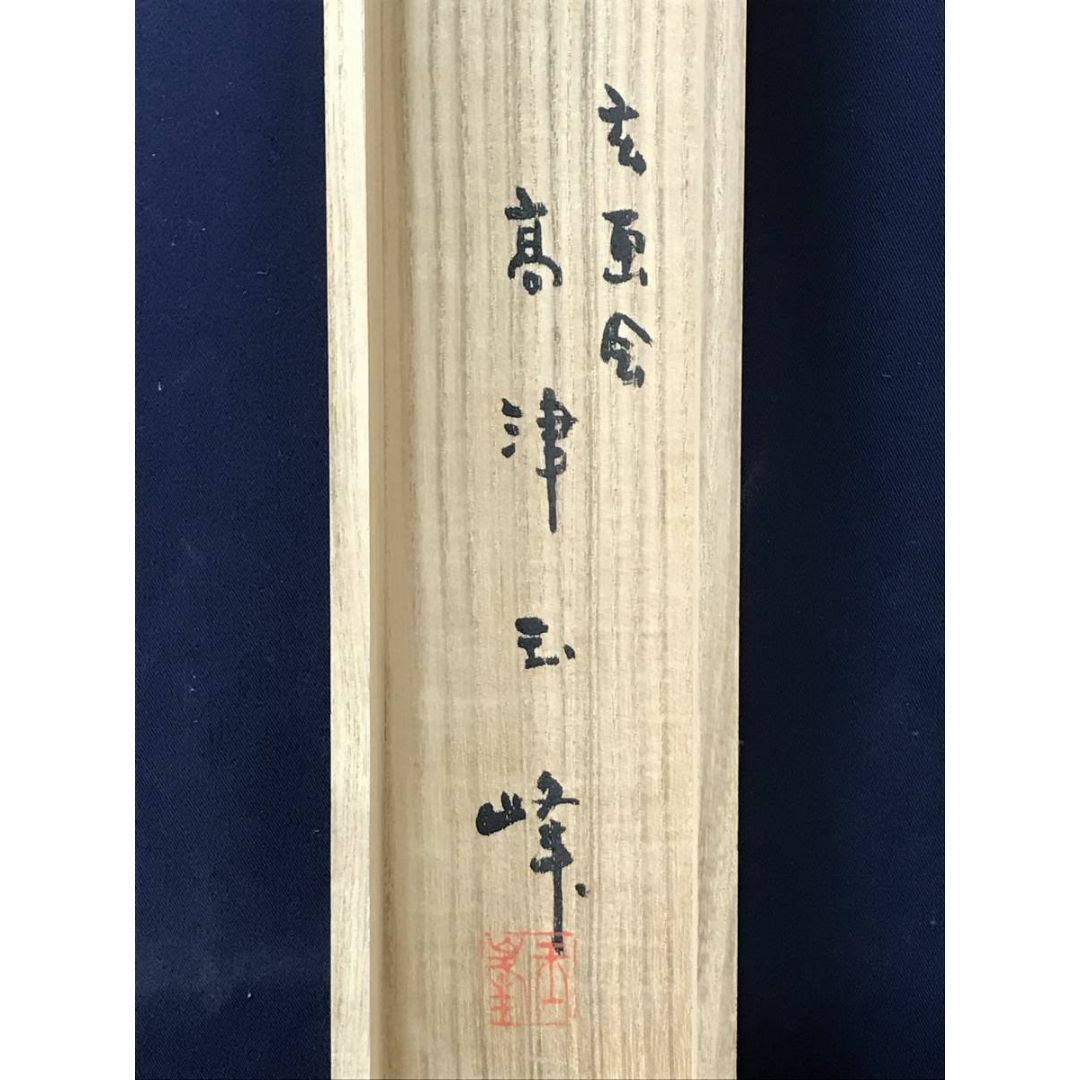 玄画会
高津玉峰